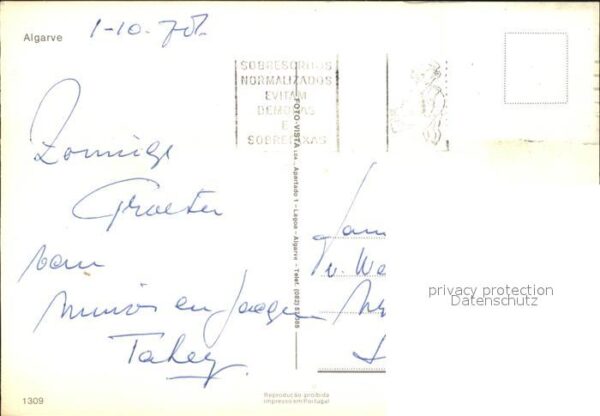 Algarve
1-10-78.
SOBRESCRITOS
NORMALIZADOS
EVITAM
DEMORAS
E
SOBRETAXAS
Zonnige
Groeten
van
en
FOTO-VISTA LDA. Apartado 1 - Lagoa - Algarve - Telef. (082)
Fam
v. We
privacy protection
Datenschutz
1309
Reprodução proibida
Impresso em Portugal